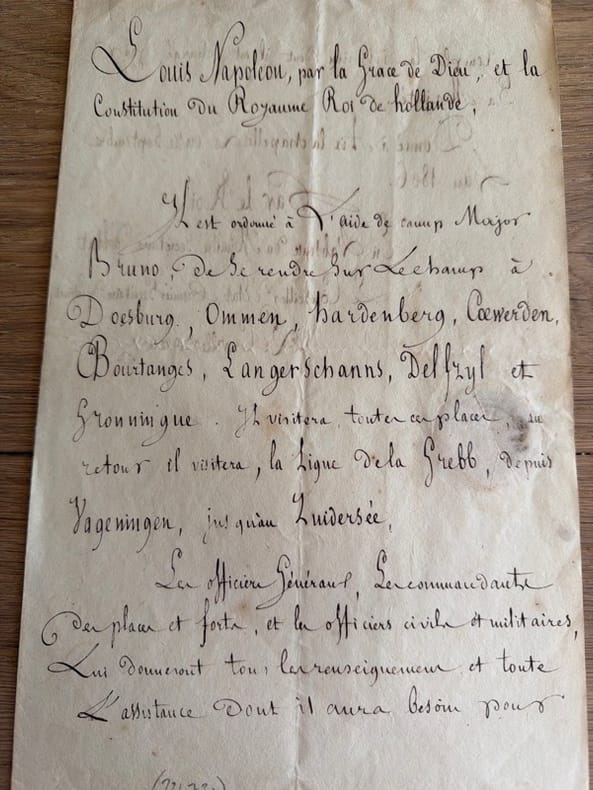 Louis Napoléon, par la Grace de Dieu, et la
Constitution du Royaume Roi de hollande,
Il est ordonné à L'aide de camp Major
Bruno, de Se rendre Sur Lechamp à
Doesburg, Ommen, hardenberg, Coewerden,
Bourtanges, Langerschanns, Delfzyl et
Gronningue. Il visitera, toutes ces places, au
retour il visitera, la Ligue de la Grebb, depuis
Vageningen, jusqu'au Zuidersée,
Les officiers Généraux, Les commandants
des places et forts, et les officiers civils et militaires,
Lui donneront tous les renseignemens et toute
L'assistance Dont il aura besoin pour